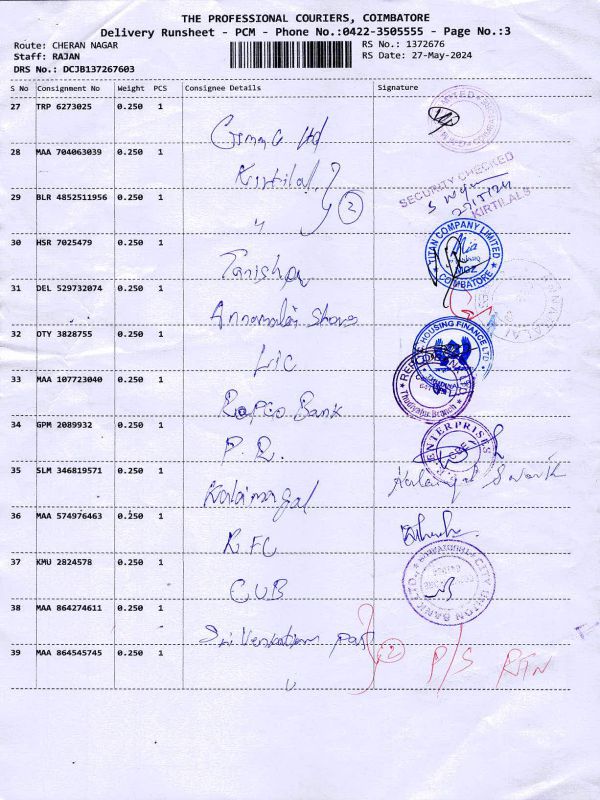 THE PROFESSIONAL COURIERS, COIMBATORE
Delivery Runsheet - PCM - Phone No.:0422-3505555 - Page No.:3
Route: CHERAN NAGAR
RS No.: 1372676
Staff: RAJAN
RS Date: 27-May-2024
DRS No.: DCJB137267603
S No Consignment No Weight PCS Consignee Details Signature
27 TRP 6273025 0.250 1
Ltd
28 MAA 704063039 0.250 1 Kirtilal
SECURITY CHECKED
27/5/24
KIRTILALS
29 BLR 4852511956 0.250 1 " 2
30 HSR 7025479 0.250 1 Tanishq
TITAN COMPANY LIMITED
COIMBATORE
31 DEL 529732074 0.250 1 Annamalai Stores
32 DTY 3828755 0.250 1 LIC
HOUSING FINANCE LTD
33 MAA 107723040 0.250 1 Repco Bank
Thudiyalur Branch
34 GPM 2089932 0.250 1 P.R.
ENTERPRISES
35 SLM 346819571 0.250 1 Kalaimagal
36 MAA 574976463 0.250 1 R.F.C
37 KMU 2824578 0.250 1 CUB
CITY UNION BANK LTD.
38 MAA 864274611 0.250 1 Sri Venkateswa
39 MAA 864545745 0.250 1 "
2 P/S RTN